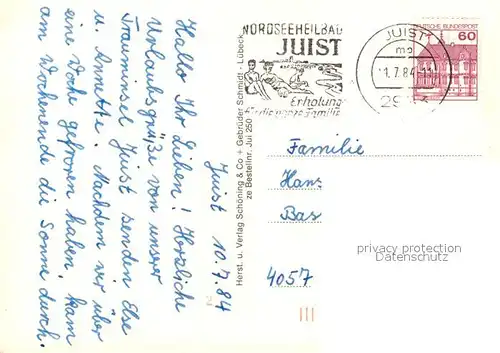 Juist 10.7.84
Hallo Ihr Lieben! Herzliche
Urlaubsgrüße von unserer
Trauminsel Juist senden Else
u. Annette. Nachdem wir über
eine Woche gefroren haben, kam
am Wochenende die Sonne durch.
Herst. u. Verlag Schöning & Co + Gebrüder Schmidt - Lübeck
ze Bestellnr. Jui 250
NORDSEEHEILBAD
JUIST
Erholung
für die ganze Familie
JUIST
11.7.84
DEUTSCHE BUNDESPOST
60
Familie
Hans
Bas
4057
privacy protection
Datenschutz